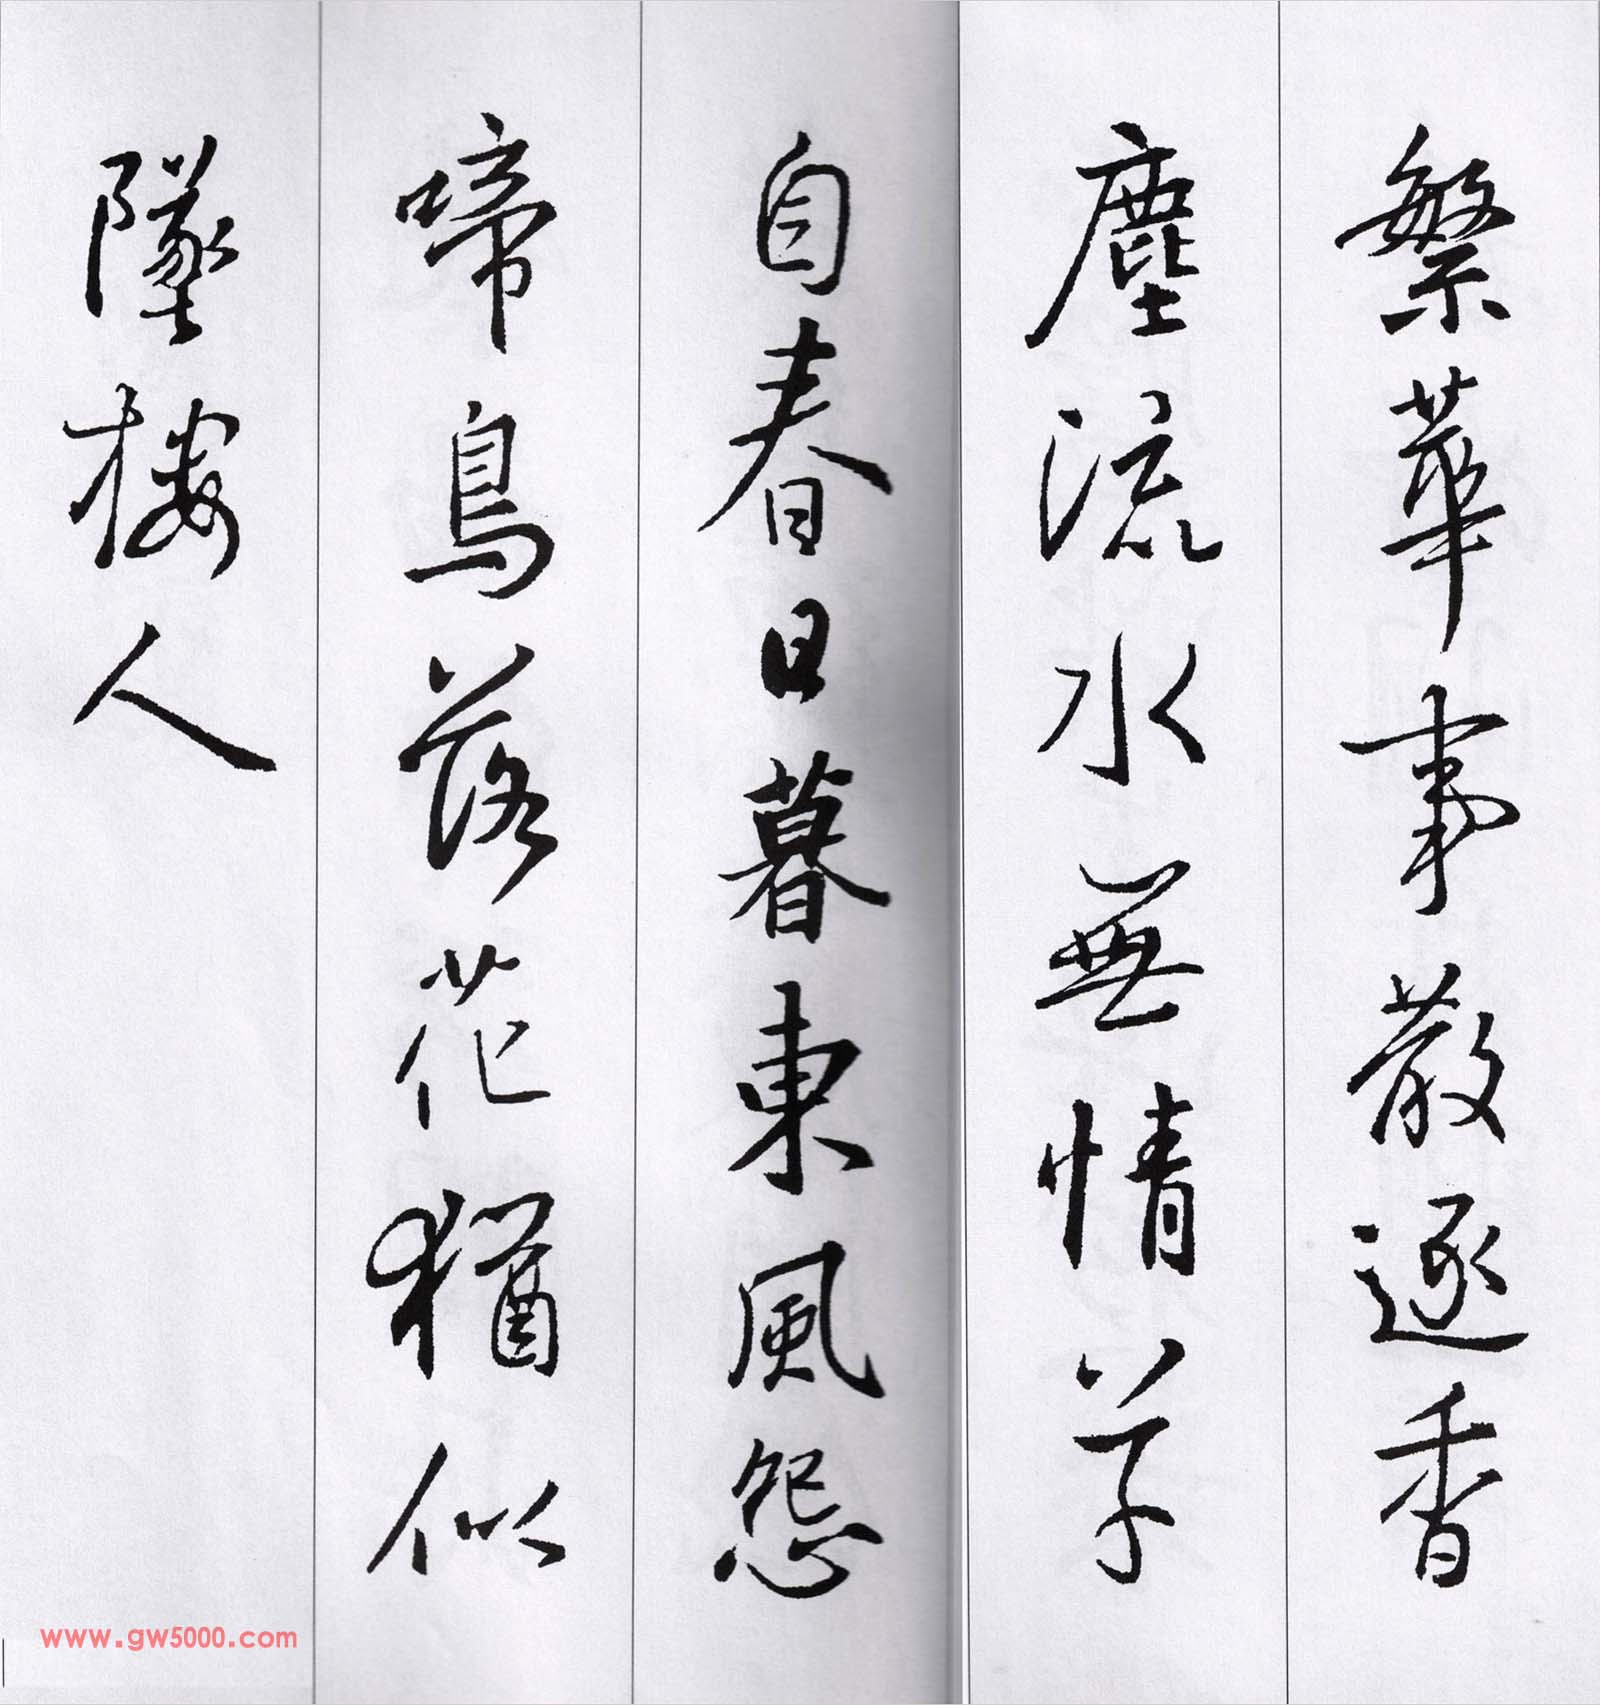 繁華事散逐香
塵流水無情草
自春日暮東風怨
啼鳥落花猶似
墜樓人
www.gw5000.com